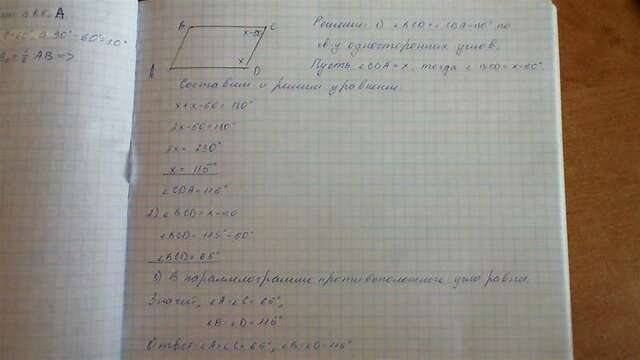 B C
x-50°
A x D
Решение: 1) ∠BCD+∠CDA=180° по
св-у односторонних углов.
Пусть ∠CDA=x, тогда ∠BCD=x-50°
Составим и решим уравнение:
x+x-50=180°
2x-50=180°
2x=230°
x=115°
∠CDA=115°
2) ∠BCD=x-50
∠BCD=115°-50°
∠BCD=65°
3) В параллелограмме противоположные углы равны.
Значит, ∠A=∠C=65°,
∠B=∠D=115°
Ответ: ∠A=∠C=65°, ∠B=∠D=115°